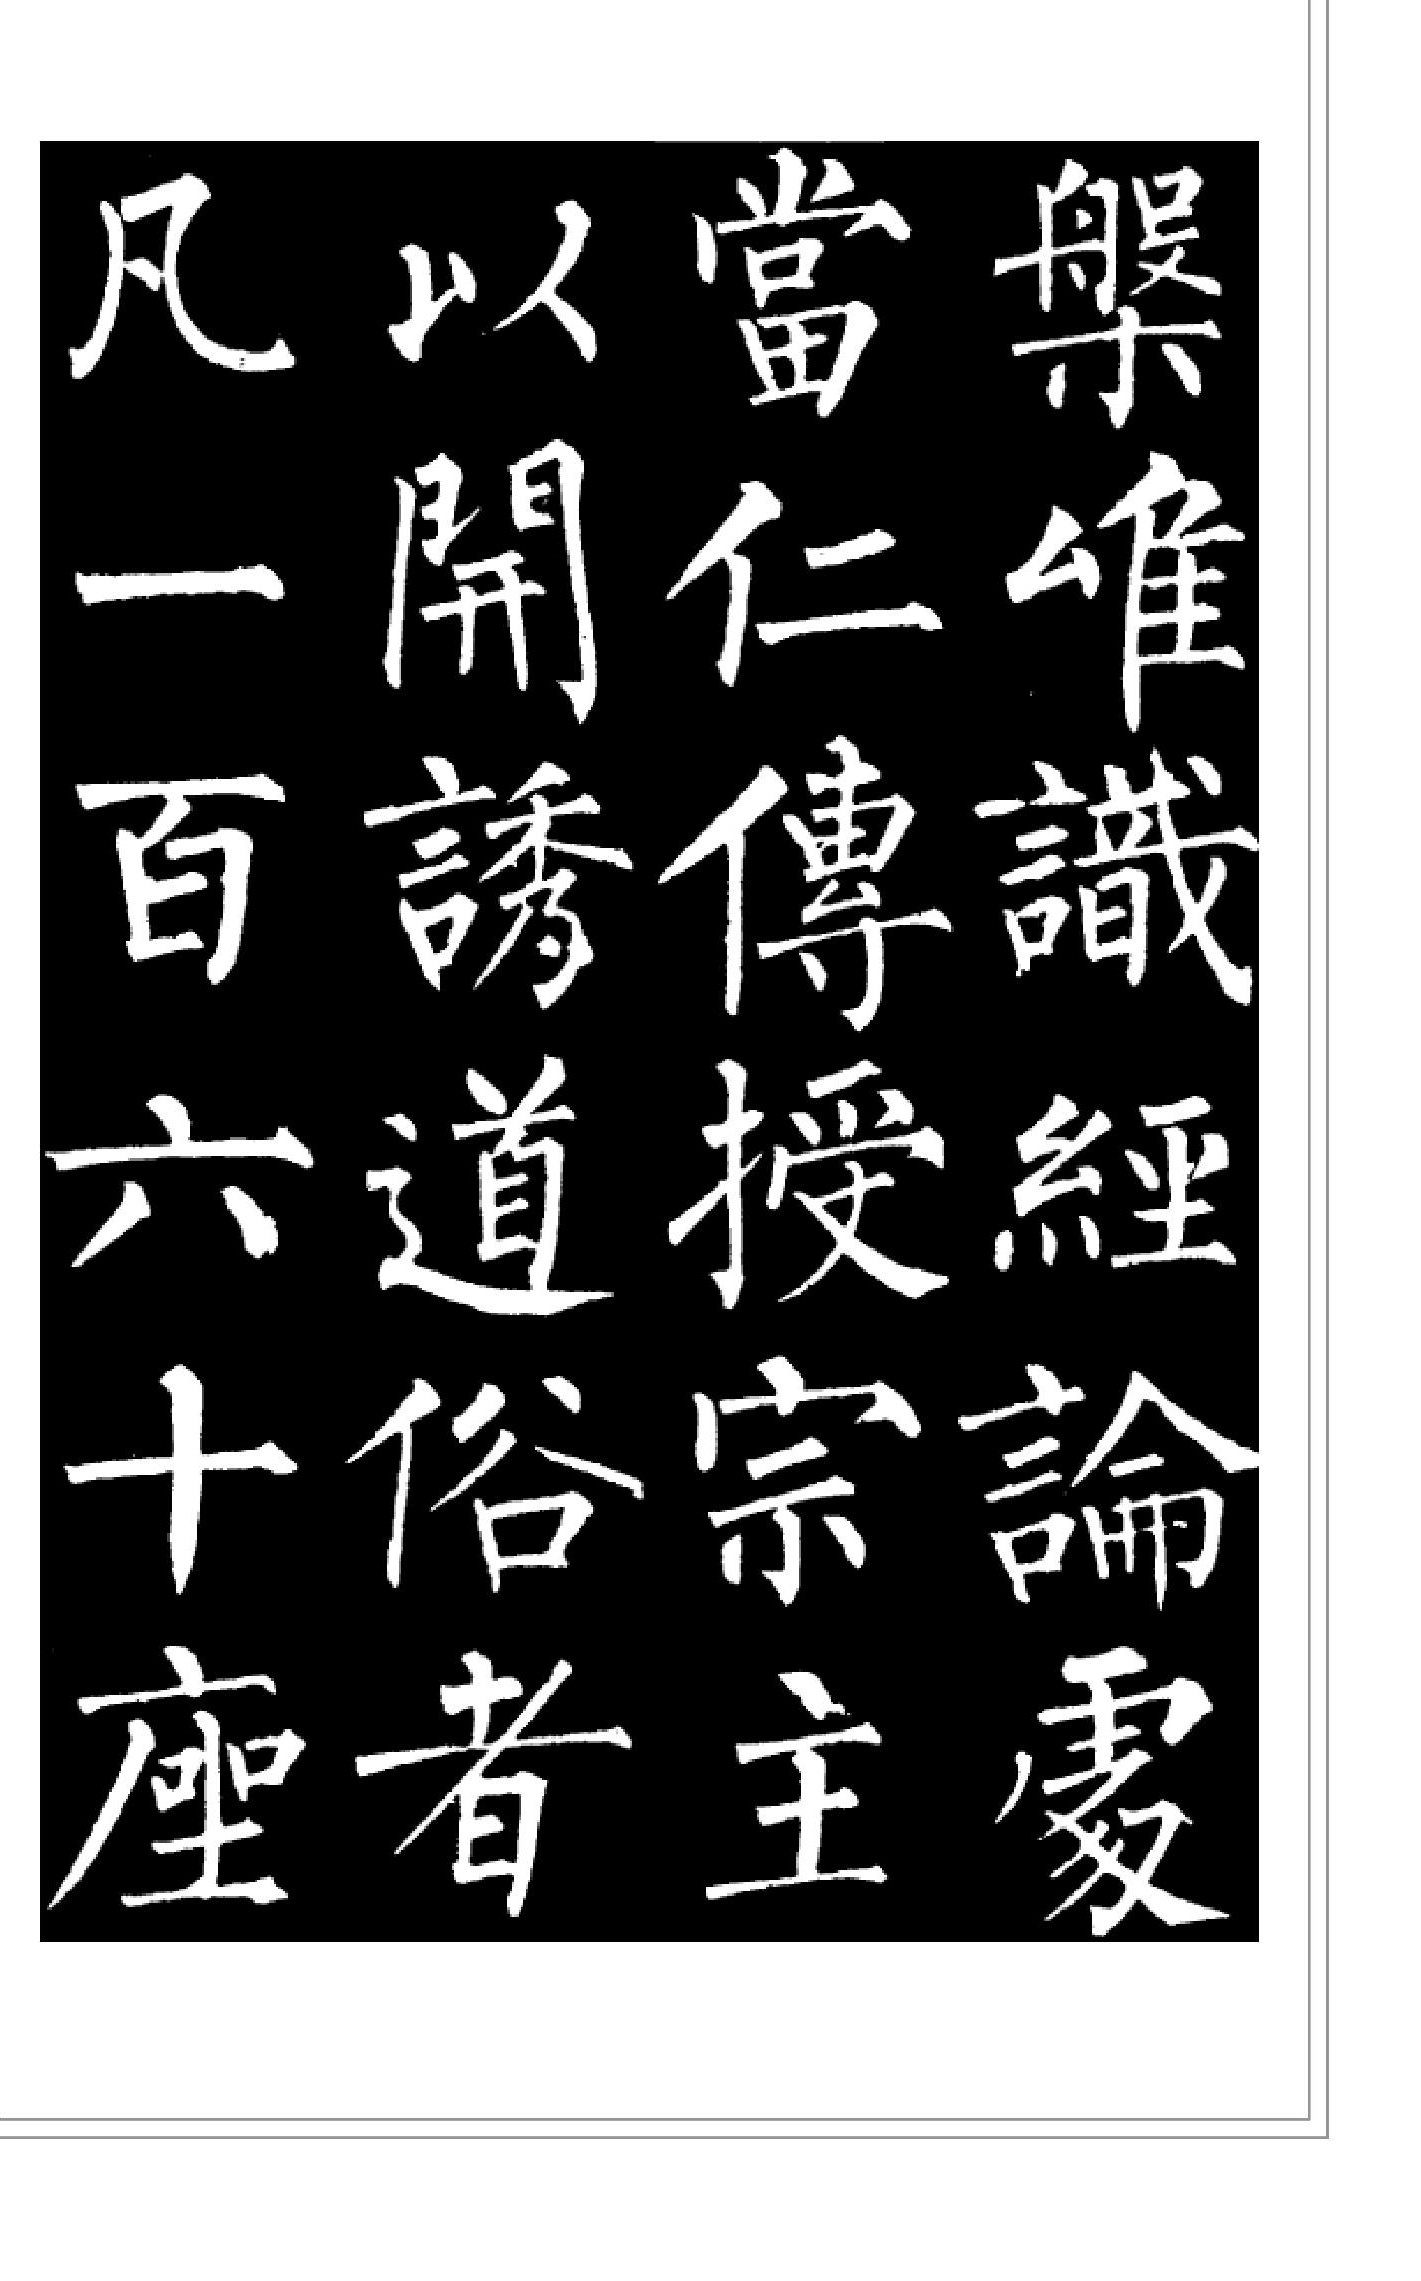 槃唯識經論處
當仁傳授宗主
以開誘道俗者
凡一百六十座